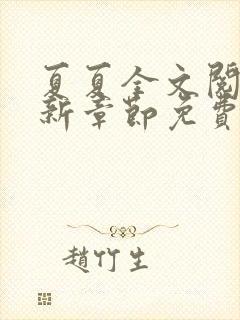 夏夏全文閱
新章節免費
趙竹生